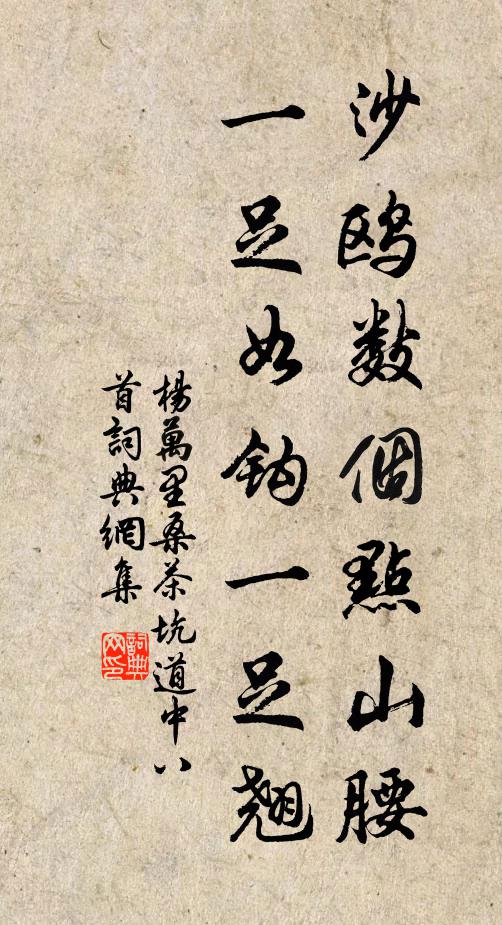 沙鸥數個點山腰
一足如鈎一足翹
楊萬里桑茶坑道中八
首詞典網集
詞典网印